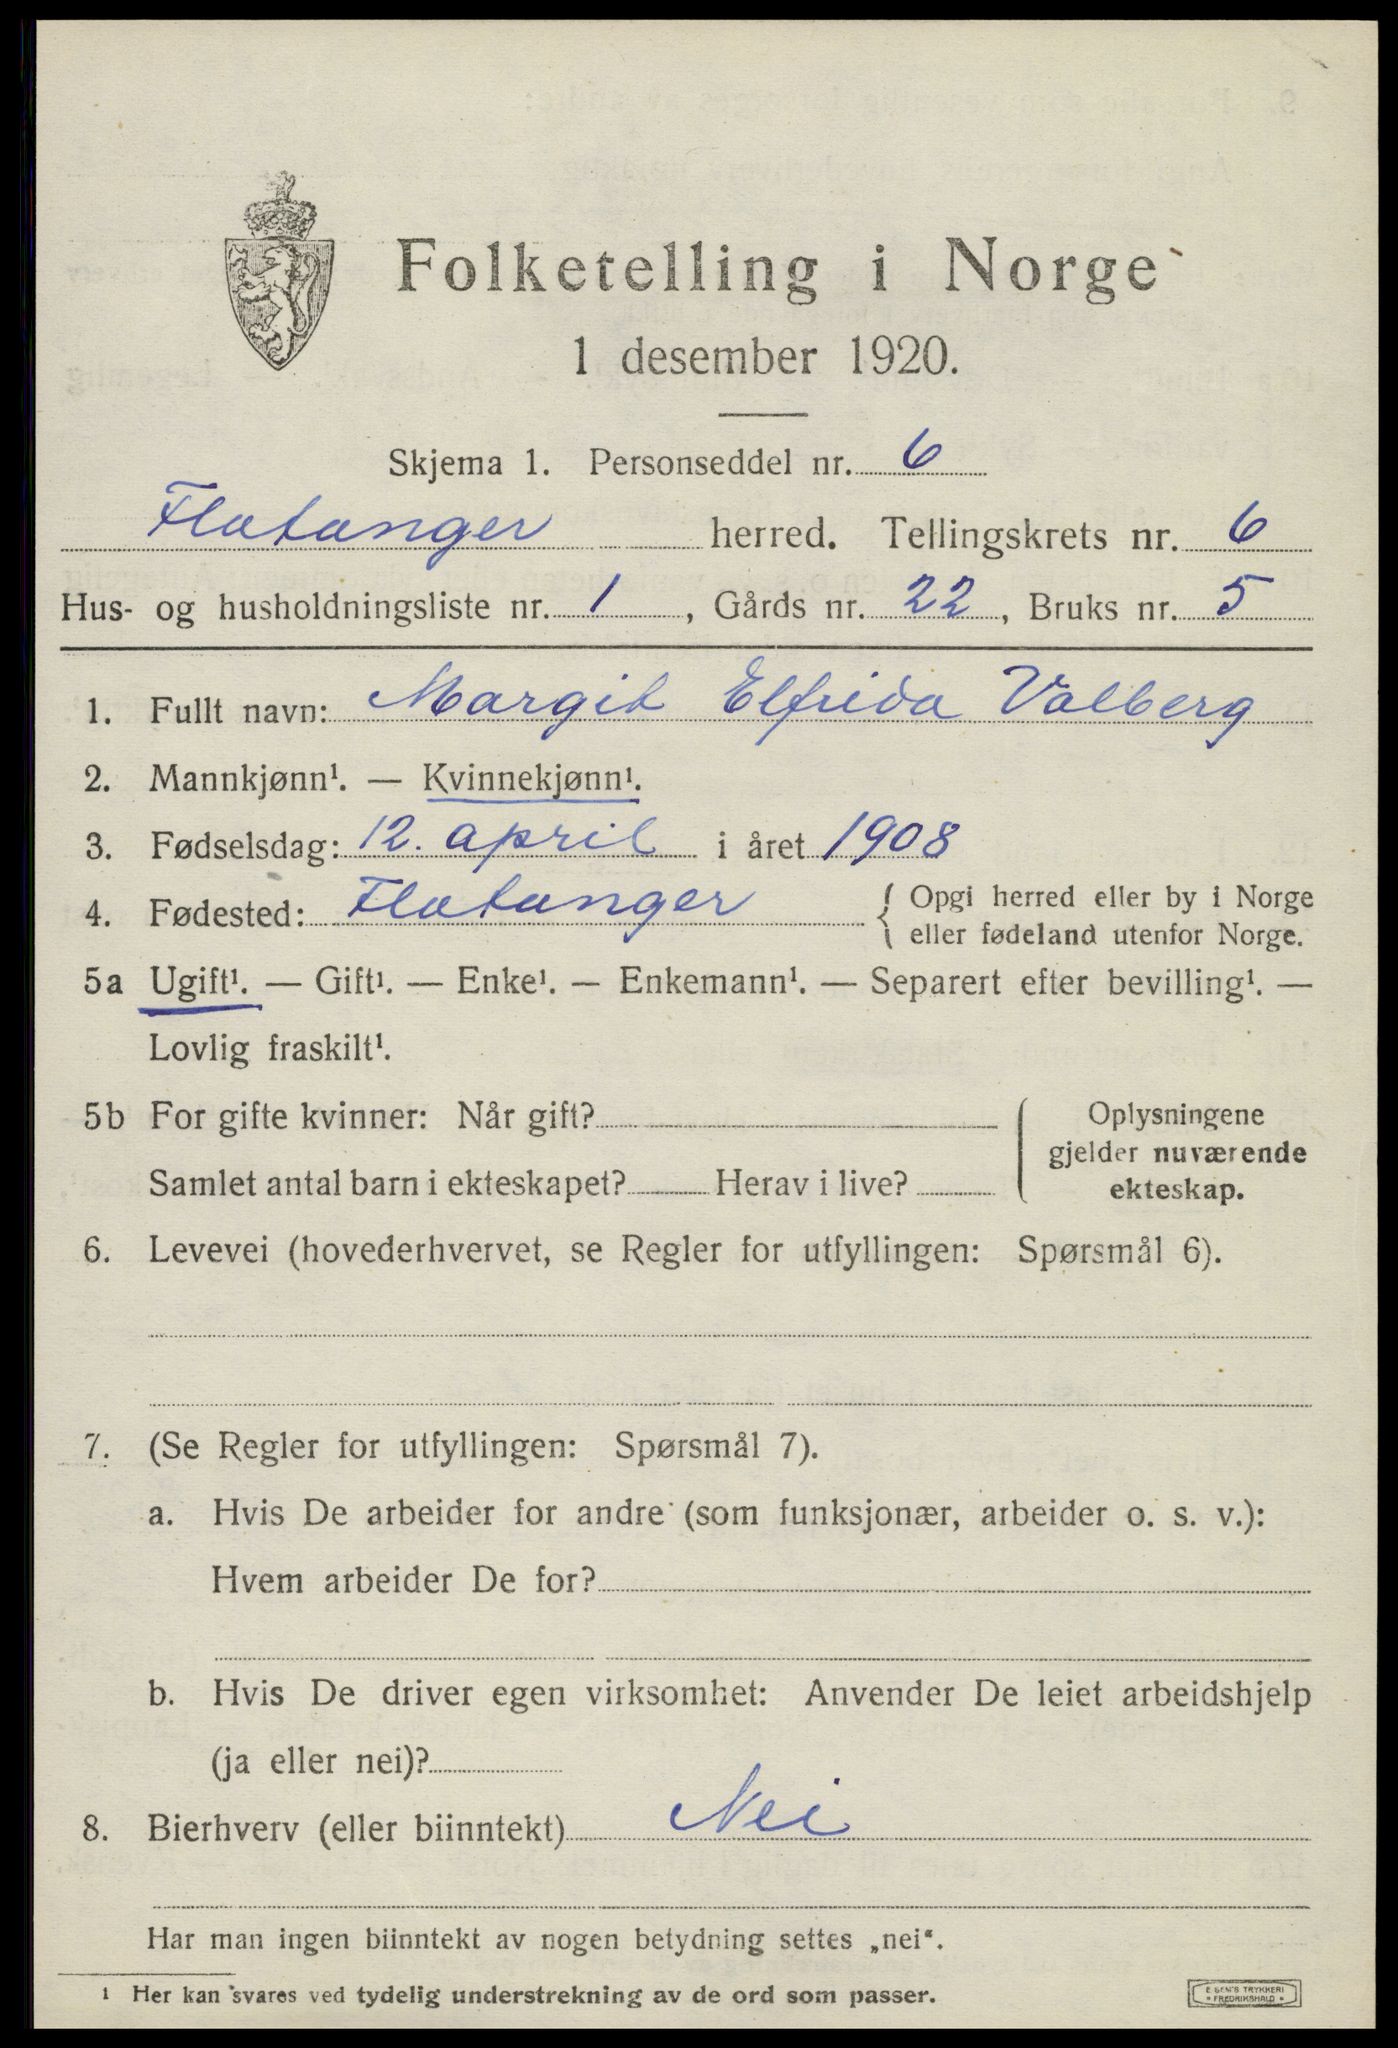 Folketelling i Norge
1 desember 1920.
Skjema 1. Personseddel nr. 6
Flatanger herred. Tellingskrets nr. 6
Hus- og husholdningsliste nr. 1, Gårds nr. 22, Bruks nr. 5
1. Fullt navn: Margit Elfrida Valberg
2. Mannkjønn¹. — Kvinnekjønn¹.
3. Fødselsdag: 12. april i året 1908
4. Fødested: Flatanger { Opgi herred eller by i Norge
eller fødeland utenfor Norge.
5a Ugift¹. — Gift¹. — Enke¹. — Enkemann¹. — Separert efter bevilling¹. —
Lovlig fraskilt¹.
5b For gifte kvinner: Når gift? Oplysningene
gjelder nuværende
Samlet antal barn i ekteskapet? Herav i live? ekteskap.
6. Levevei (hovederhvervet, se Regler for utfyllingen: Spørsmål 6).
7. (Se Regler for utfyllingen: Spørsmål 7).
a. Hvis De arbeider for andre (som funksjonær, arbeider o. s. v.):
Hvem arbeider De for?
b. Hvis De driver egen virksomhet: Anvender De leiet arbeidshjelp
(ja eller nei)?
8. Bierhverv (eller biinntekt) Nei
Har man ingen biinntekt av nogen betydning settes „nei“.
¹ Her kan svares ved tydelig understrekning av de ord som passer.
E SEM'S TRYKKERI
• FREDRIKSHALD •